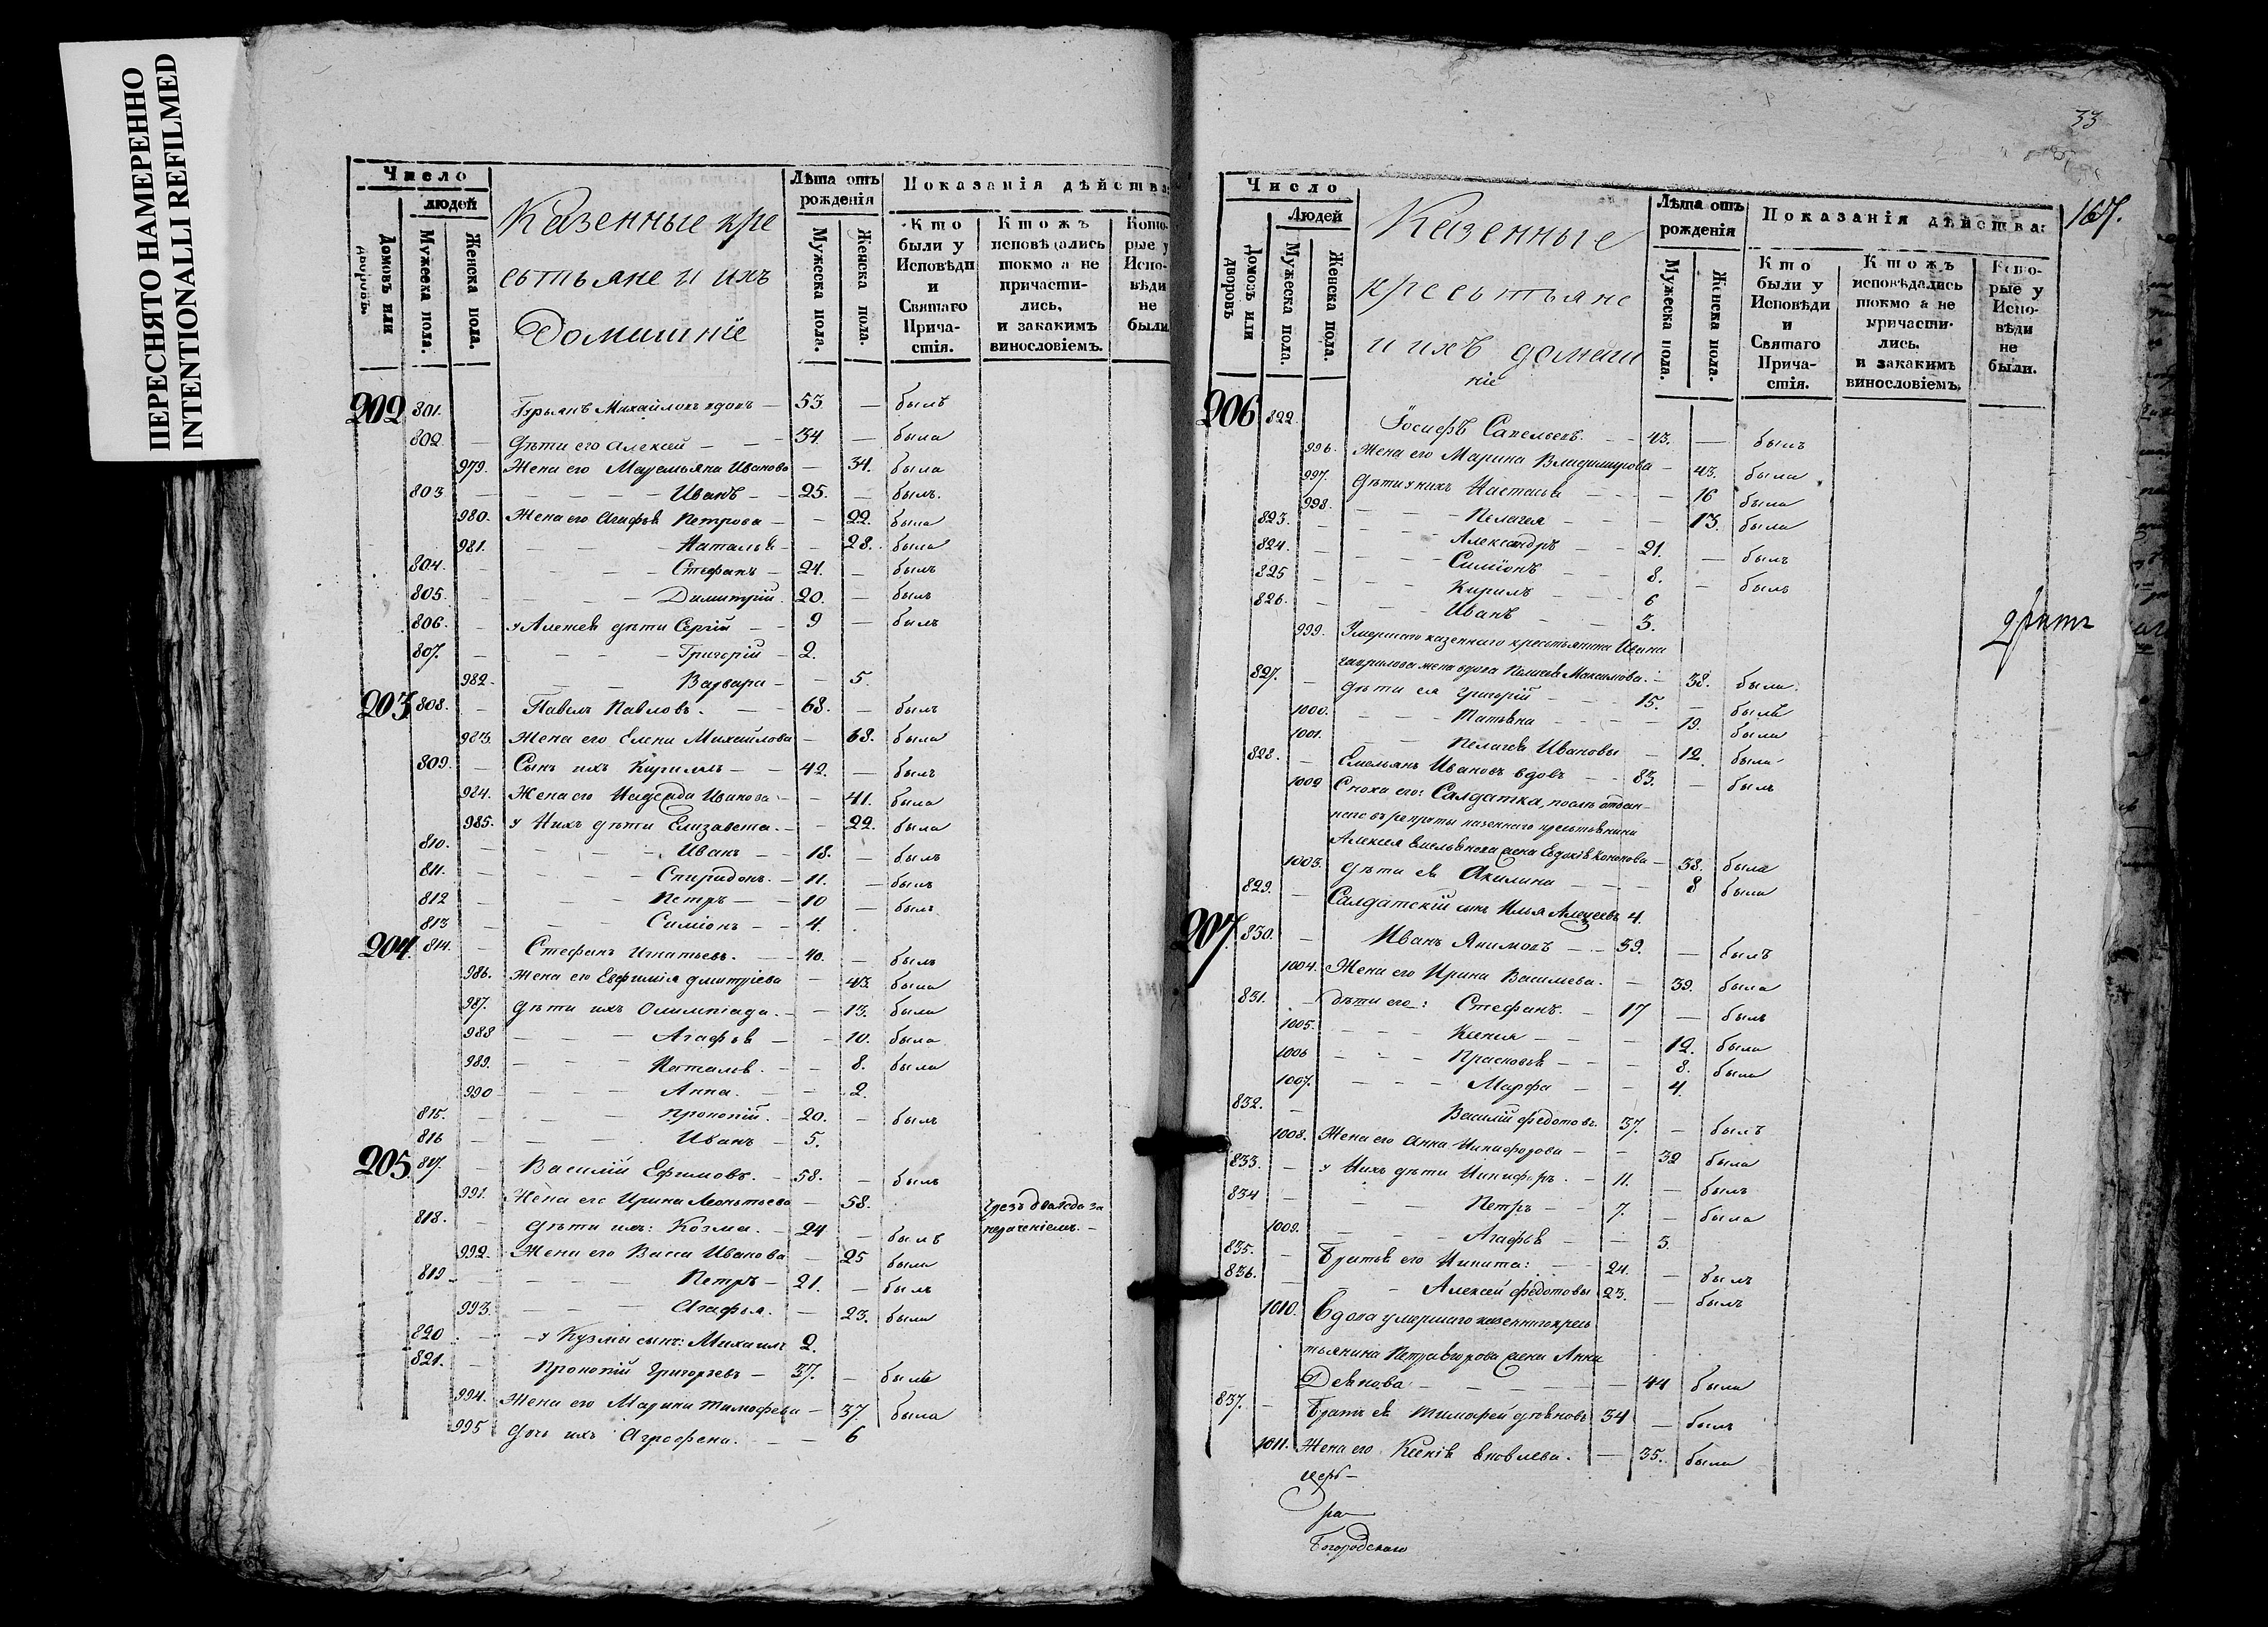 ПЕРЕСНЯТО НАМЕРЕННО
INTENTIONALLI REFILMED
Число
людей
Домовъ или дворовъ.
Мужеска пола.
Женска пола.
Казенные кре
стьяне и ихъ
Домашніе
Лѣта отъ рожденія
Мужеска пола.
Женска пола.
Показанія дѣйства:
Кто были у Исповѣди и Святаго Причастія.
Ктожъ исповѣдались токмо а не причастились, и закакимъ винословіемъ.
Которые у Исповѣди не были.
202 801. Гурьянъ Михайловъ вдовъ — 53. — былъ
802. — Дѣти его Алексей — — 34. — была
979. Жена его Иванова — 34. была
803 — — — — Иванъ — — 25. — былъ.
980. Жена его Агафья Петрова — — 22. была
981. — — — Наталья — — 28. была
804. — — — — Стефанъ — 24. — былъ
805. — — — — Димитрій. 20. — былъ
806. — у Алексея дѣти Сергій — — 9 — былъ
807. — — — — Григорій — 2.
982. — — — Варвара — — 5.
203 808. — Павелъ Павловъ. — — 68. — былъ
983. Жена его Елена Михайлова — 68. была
809. — Сынъ ихъ Кириллъ — — 42. — былъ
984. Жена его Иванова — — 41. была
985. у Нихъ дѣти Елизавета. — — 22. была
810. — — — — Иванъ — — 18. — былъ
811. — — — — Спиридонъ. — 11. — былъ
812 — — — Петръ — — 10 — былъ
813 — — — Симіонъ — — 4.
204. 814. — Стефанъ Игнатьевъ. — — 40. — былъ
986. Жена его Евфимія Дмитріева — 43. была
987. Дѣти ихъ Олимпіада. — — 13. была
988 — — — Агафья — — 10. была
989. — — — Наталья. — — 8. была
990 — — — Анна. — — 2.
815. — — — Прокопій. — 20. — былъ
816 — — — Иванъ — 5.
205. 817. — Василій Ефимовъ. — 58. — былъ
991. Жена его Ирина Леонтьева — 58.
нераченіемъ. —
818. — Дѣти ихъ: Козма. — 24 — былъ
992. Жена его Васса Иванова — 25 была
819 — — — — Петръ — 21. — былъ
993. — — — Агафья. — 23. была
820 — — у Кузмы сынъ: Михаилъ 2.
821. — Прокопій Григорьевъ — 37. — былъ
994. Жена его Марина Тимофеева — 37. была
995 Дочь ихъ Агрофена. — — 6
33
167.
Число
Людей
Домовъ или дворовъ
Мужеска пола.
Женска пола.
Казенные
крестьяне
и ихъ домаш
ніе
Лѣта отъ рожденія
Мужеска пола.
Женска пола.
Показанія дѣйства:
Кто были у Исповѣди и Святаго Причастія.
Ктожъ исповѣдались токмо а не причастились. и закакимъ винословіемъ.
Которые у Исповѣди не были.
206 822. Іосифъ Савельевъ. — — 43. — былъ
996. Жена его Марина Владимирова — 43. была
997. Дѣти у нихъ Настасья — — — 16 была
998. — — — Пелагея — — 13. была
823. — — — Александръ — — 21. — былъ
824. — — — Симіонъ — — 8. — былъ
825 — — — Кирилъ — — 6
826. — — — Иванъ — — 3.
999. Умершаго казеннаго крестьянина Ивана
Гаврилова жена вдова Максимова. — 38. была.
827. — Дѣти ея Григорій — — 15. — былъ
1000. — — — Татьяна — — — 19. была
1001. — — Пелагея Ивановы — 12. была
828. — Емельянъ Ивановъ вдовъ — — 83. — былъ
1002 Сноха его: Салдатка, послѣ отдан-
наго въ рекруты казеннаго крестьянина
Алексея Емельянова жена Евдокія Кононова — 38. была
1003. Дѣти ея Акилина — — — 8 была
829. — Салдатскій сынъ Илья Алексеевъ 4.
207. 830. — Иванъ Якимовъ — — 39. — былъ
1004. Жена его Ирина Васильева. — 39. была
831. — Дѣти его: Стефанъ. — 17 — былъ
1005. — — — Ксенія — — — 12. была
1006 — — — Прасковья — — 8. была
1007. — — — Марфа — — 4.
832. — Василій Федотовъ. 37. — былъ
1008. Жена его Анна Никифорова — — 32 была
833. — у Нихъ дѣти Никифоръ. — 11. — былъ
834 — — — Петръ — — 7. — была
1009. — — — Агафья — — 3.
835. — Братья его Никита: — — 24. — былъ
836. — — Алексей Федотовы 23. — былъ
1010. Вдова умершаго казеннаго кресь
тьянина Петра жена Анна
— — — — — 44 была
837. — Братъ ея Тимофей 34 — былъ
1011. Жена его Ксенія Яковлева. — 35. была
церк—
ра—
Богородскаго